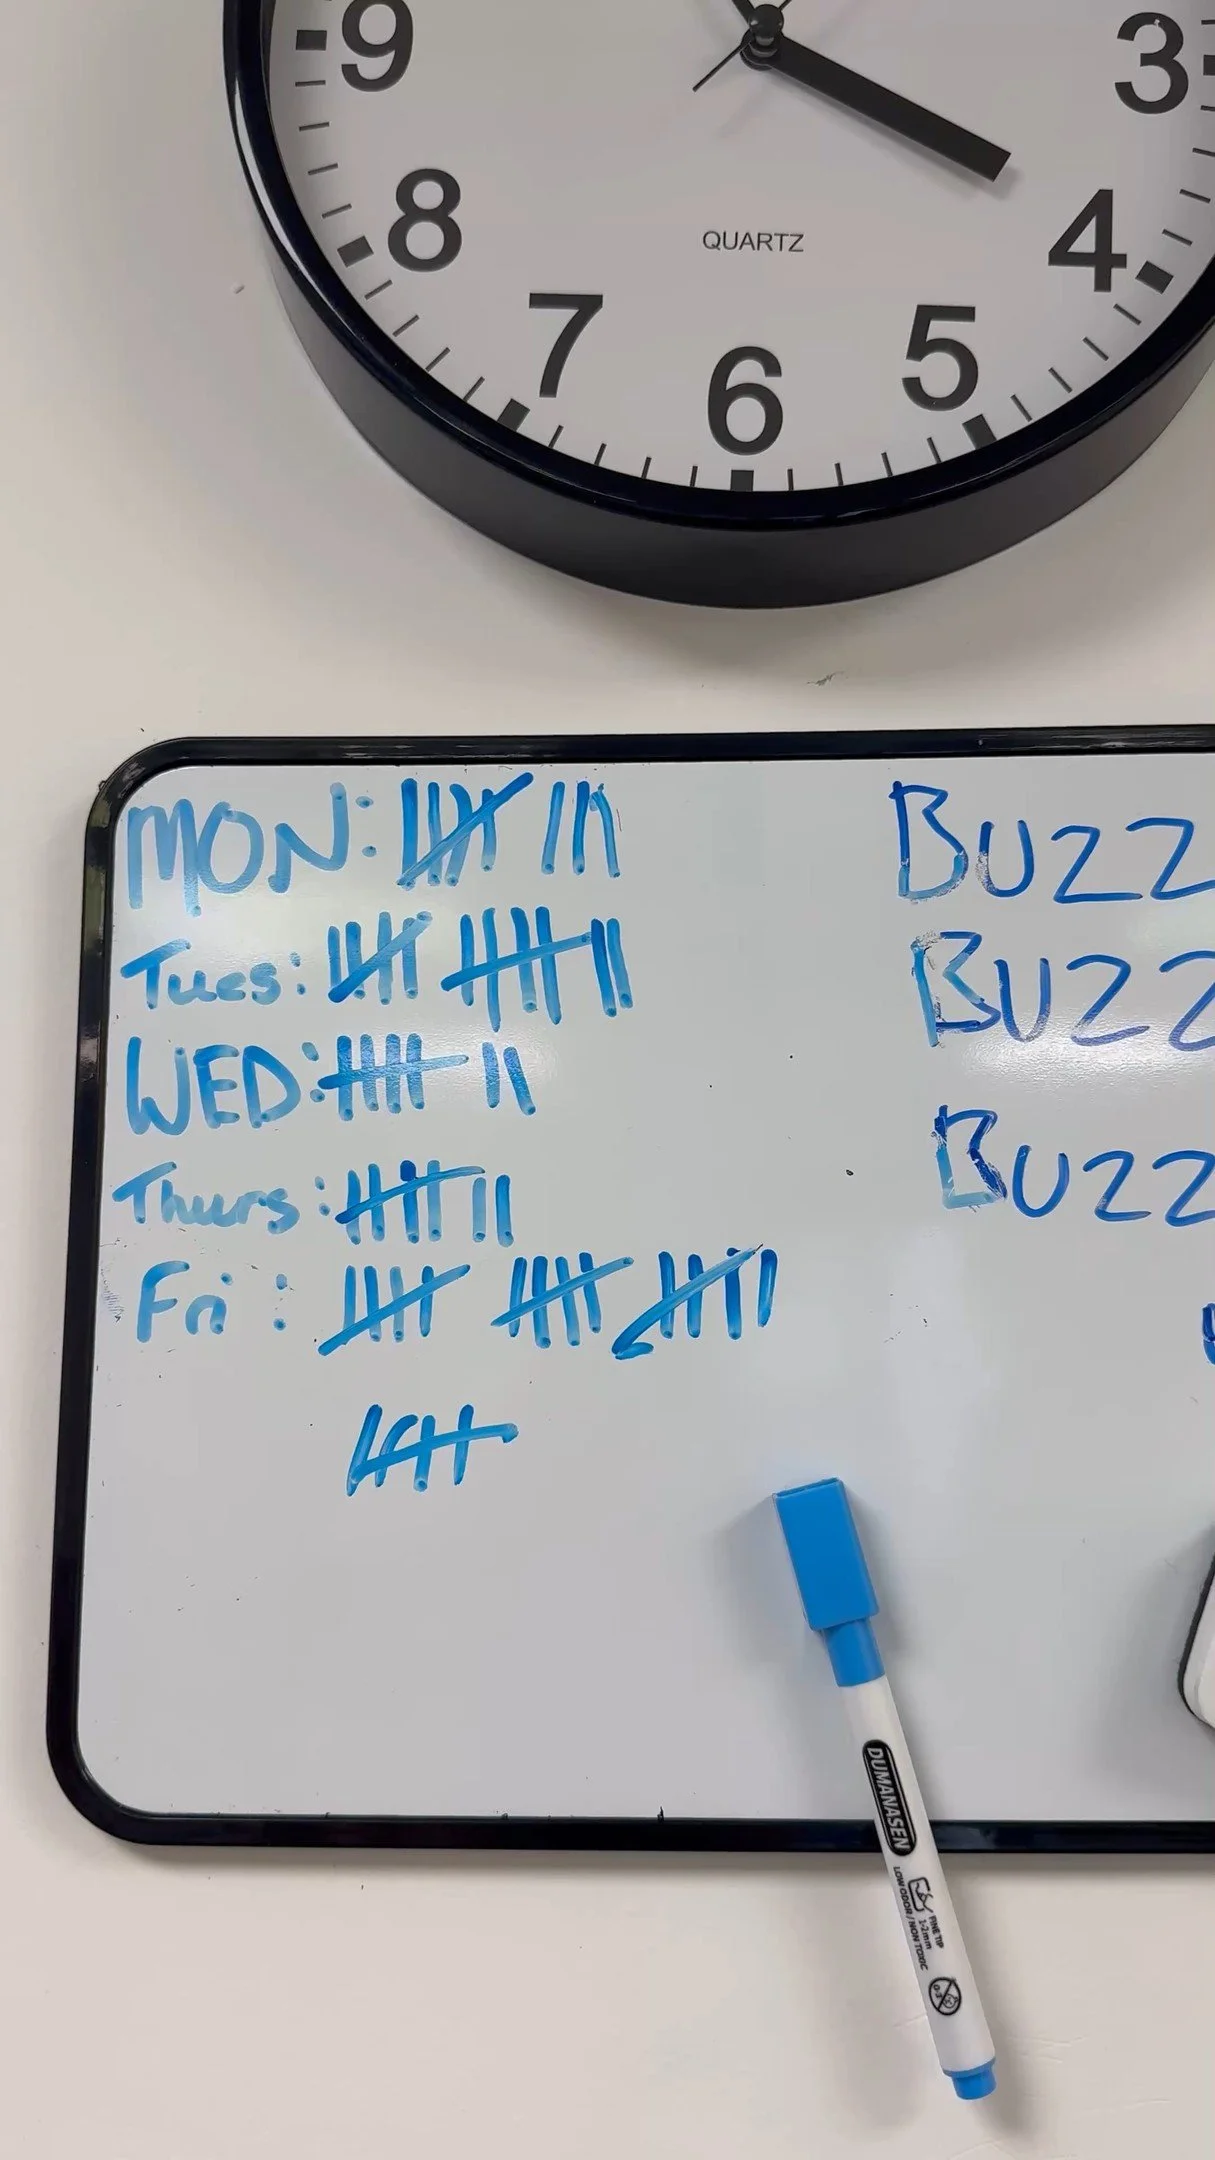 9 3
8 4
QUARTZ
7 5
6
MON: ||||/ |||
Tues: ||||/ ||||/ ||
WED: ||||/ ||
Thurs: ||||/ ||
Fri: ||||/ ||||/ ||||/ |
||||/
BUZZ
BUZZ
BUZZ
DUMANASEN
FINE TIP
1-2mm
LOW ODOR / NON TOXIC
0-3